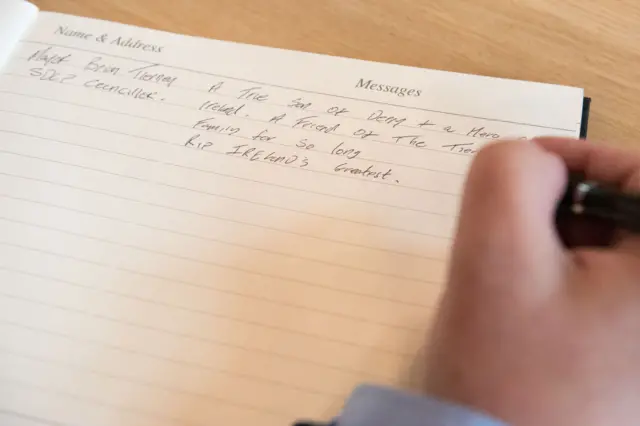 Name & Address
Messages
Mayor Brian Tierney
SDLP Councillor.
A True Son of Derry & a Hero
Ireland. A Friend of The
Family for So long
RIP IRELAND'S Greatest.